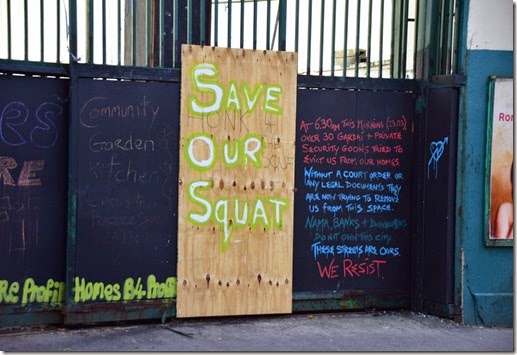 Community
Garden
Kitchen
RE
re Profit
Homes B4 Profit
Save
Honk 4
Our
Squat
At 6.30am this morning
over 30 Gardaí + Private
Security goons tried to
evict us from our homes.
Without a court order or
any legal documents they
are now trying to remove
us from this space.
NAMA, Banks +
do not own this city
These streets are ours.
We Resist.
Ro